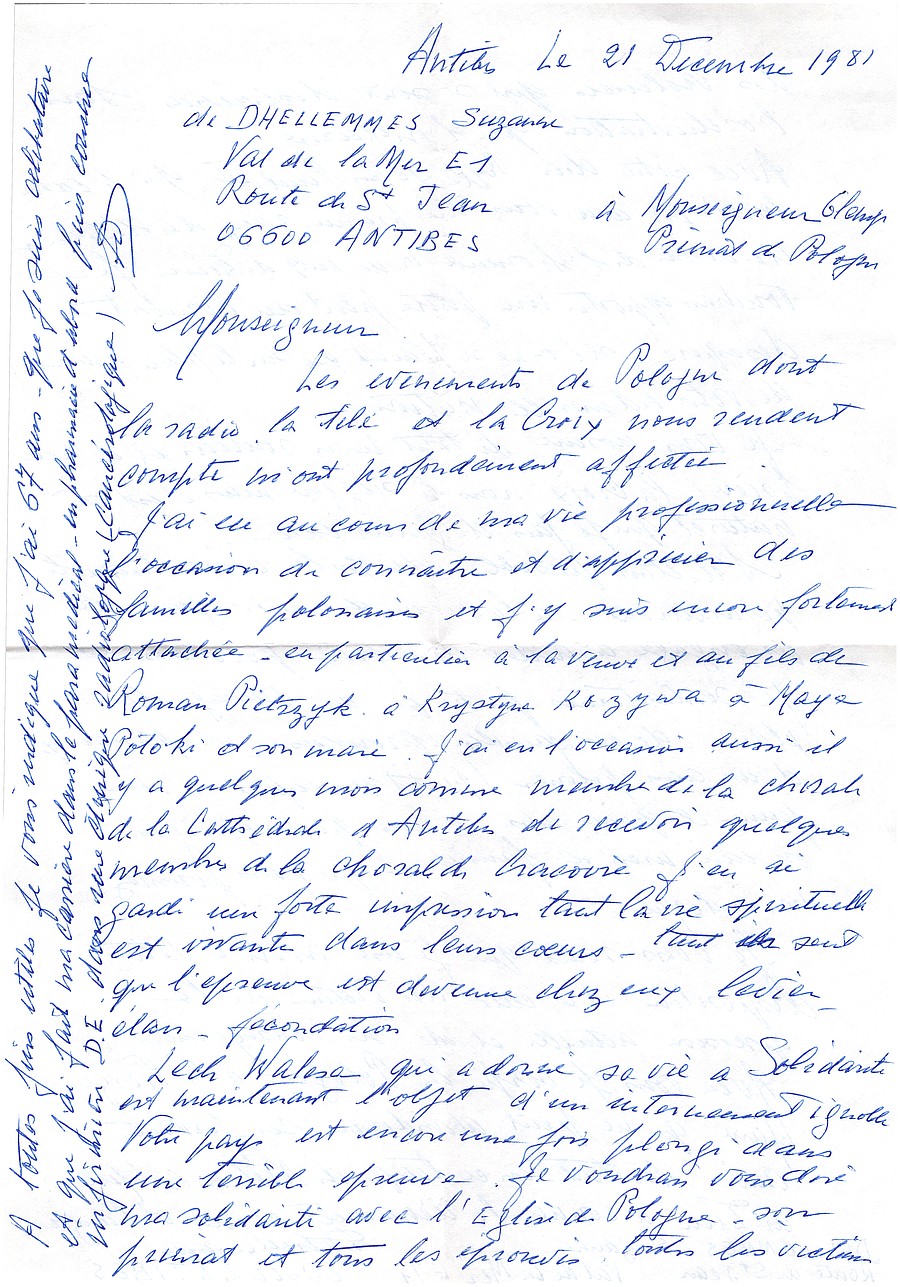 Antibes Le 21 Decembre 1981
de DHELLEMMES Suzanne
Val de la Mer E1
Route de St Jean
06600 ANTIBES
à Monseigneur Glemp
Primat de Pologne
Monseigneur
Les evènements de Pologne dont
la radio la télé et la Croix nous rendent
compte m'ont profondement affectée.
J'ai eu au cours de ma vie professionnelle
l'occasion de connaître et d'apprécier des
familles polonaises et j'y suis encore fortement
attachée - en particulier à la veuve et au fils de
Roman Pietrzyk. à Krystyna Kozywa à Maya
Potoki et son mari. J'ai eu l'occasion aussi il
y a quelques mois comme membre de la chorale
de la Cathédrale d'Antibes de recevoir quelques
membres de la chorale de Cracovie J'en ai
gardé une forte impression tant la vie spirituelle
est vivante dans leurs cœurs - tant sent
que l'epreuve est devenue chez eux
élan - fécondation
Lech Walesa qui a donné sa vie a Solidarité
est maintenant l'objet d'un internement ignoble
Votre pays est encore une fois plongé dans
une terrible epreuve. Je voudrais vous dire
ma solidarité avec l'Eglise de Pologne - son
primat et tous les éprouvés toutes les victimes
A toutes fins utiles je vous indique que j'ai 67 ans - que je suis célibataire
et que j'ai fait ma carrière dans le paramédical - en pharmacie d'abord puis comme
infirmière D.E. dans une clinique (cancérologique) SD